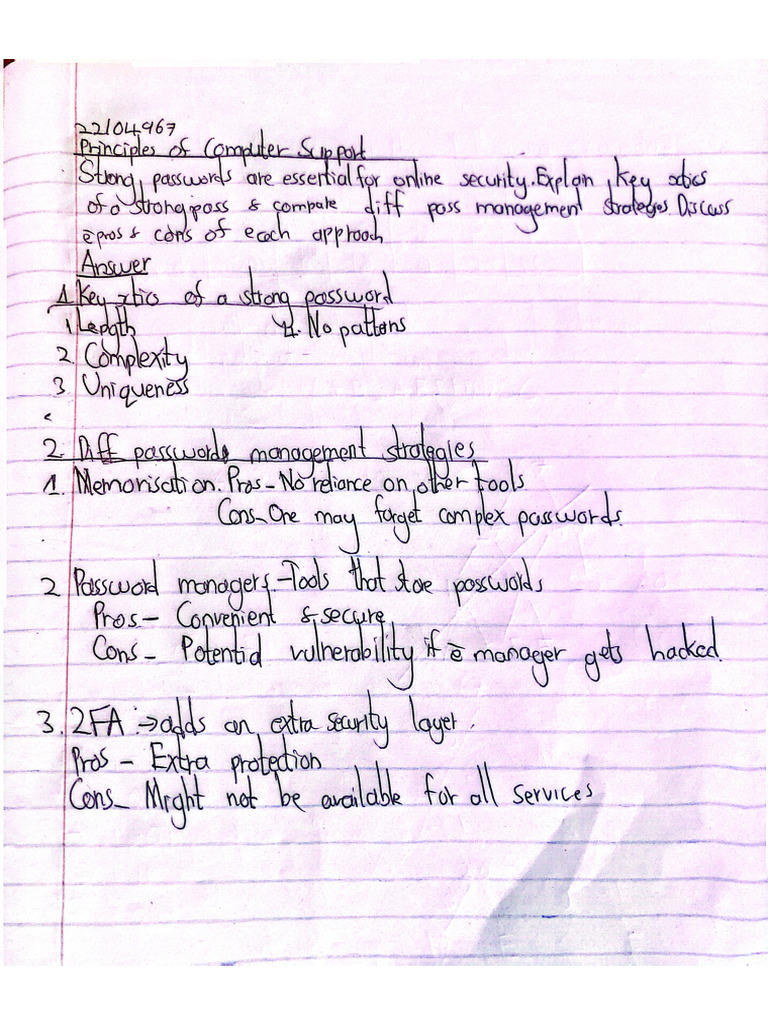 22/04967
Principles of Computer Support
Strong passwords are essential for online security. Explain key xtics
of a strong pass & compare diff pass management strategies. Discuss
ē pros & cons of each approach
Answer
1. Key xtics of a strong password
1. Length 4. No pattens
2. Complexity
3 Uniqueness
2. Diff passwords management strategies
1. Memorisation. Pros - No reliance on other tools.
Cons - One may forget complex passwords.
2 Password managers. - Tools that store passwords
Pros - Convenient & secure
Cons - Potential vulnerability if ē manager gets hacked.
3. 2FA :→ adds an extra security layer.
Pros - Extra protection
Cons - Might not be available for all services